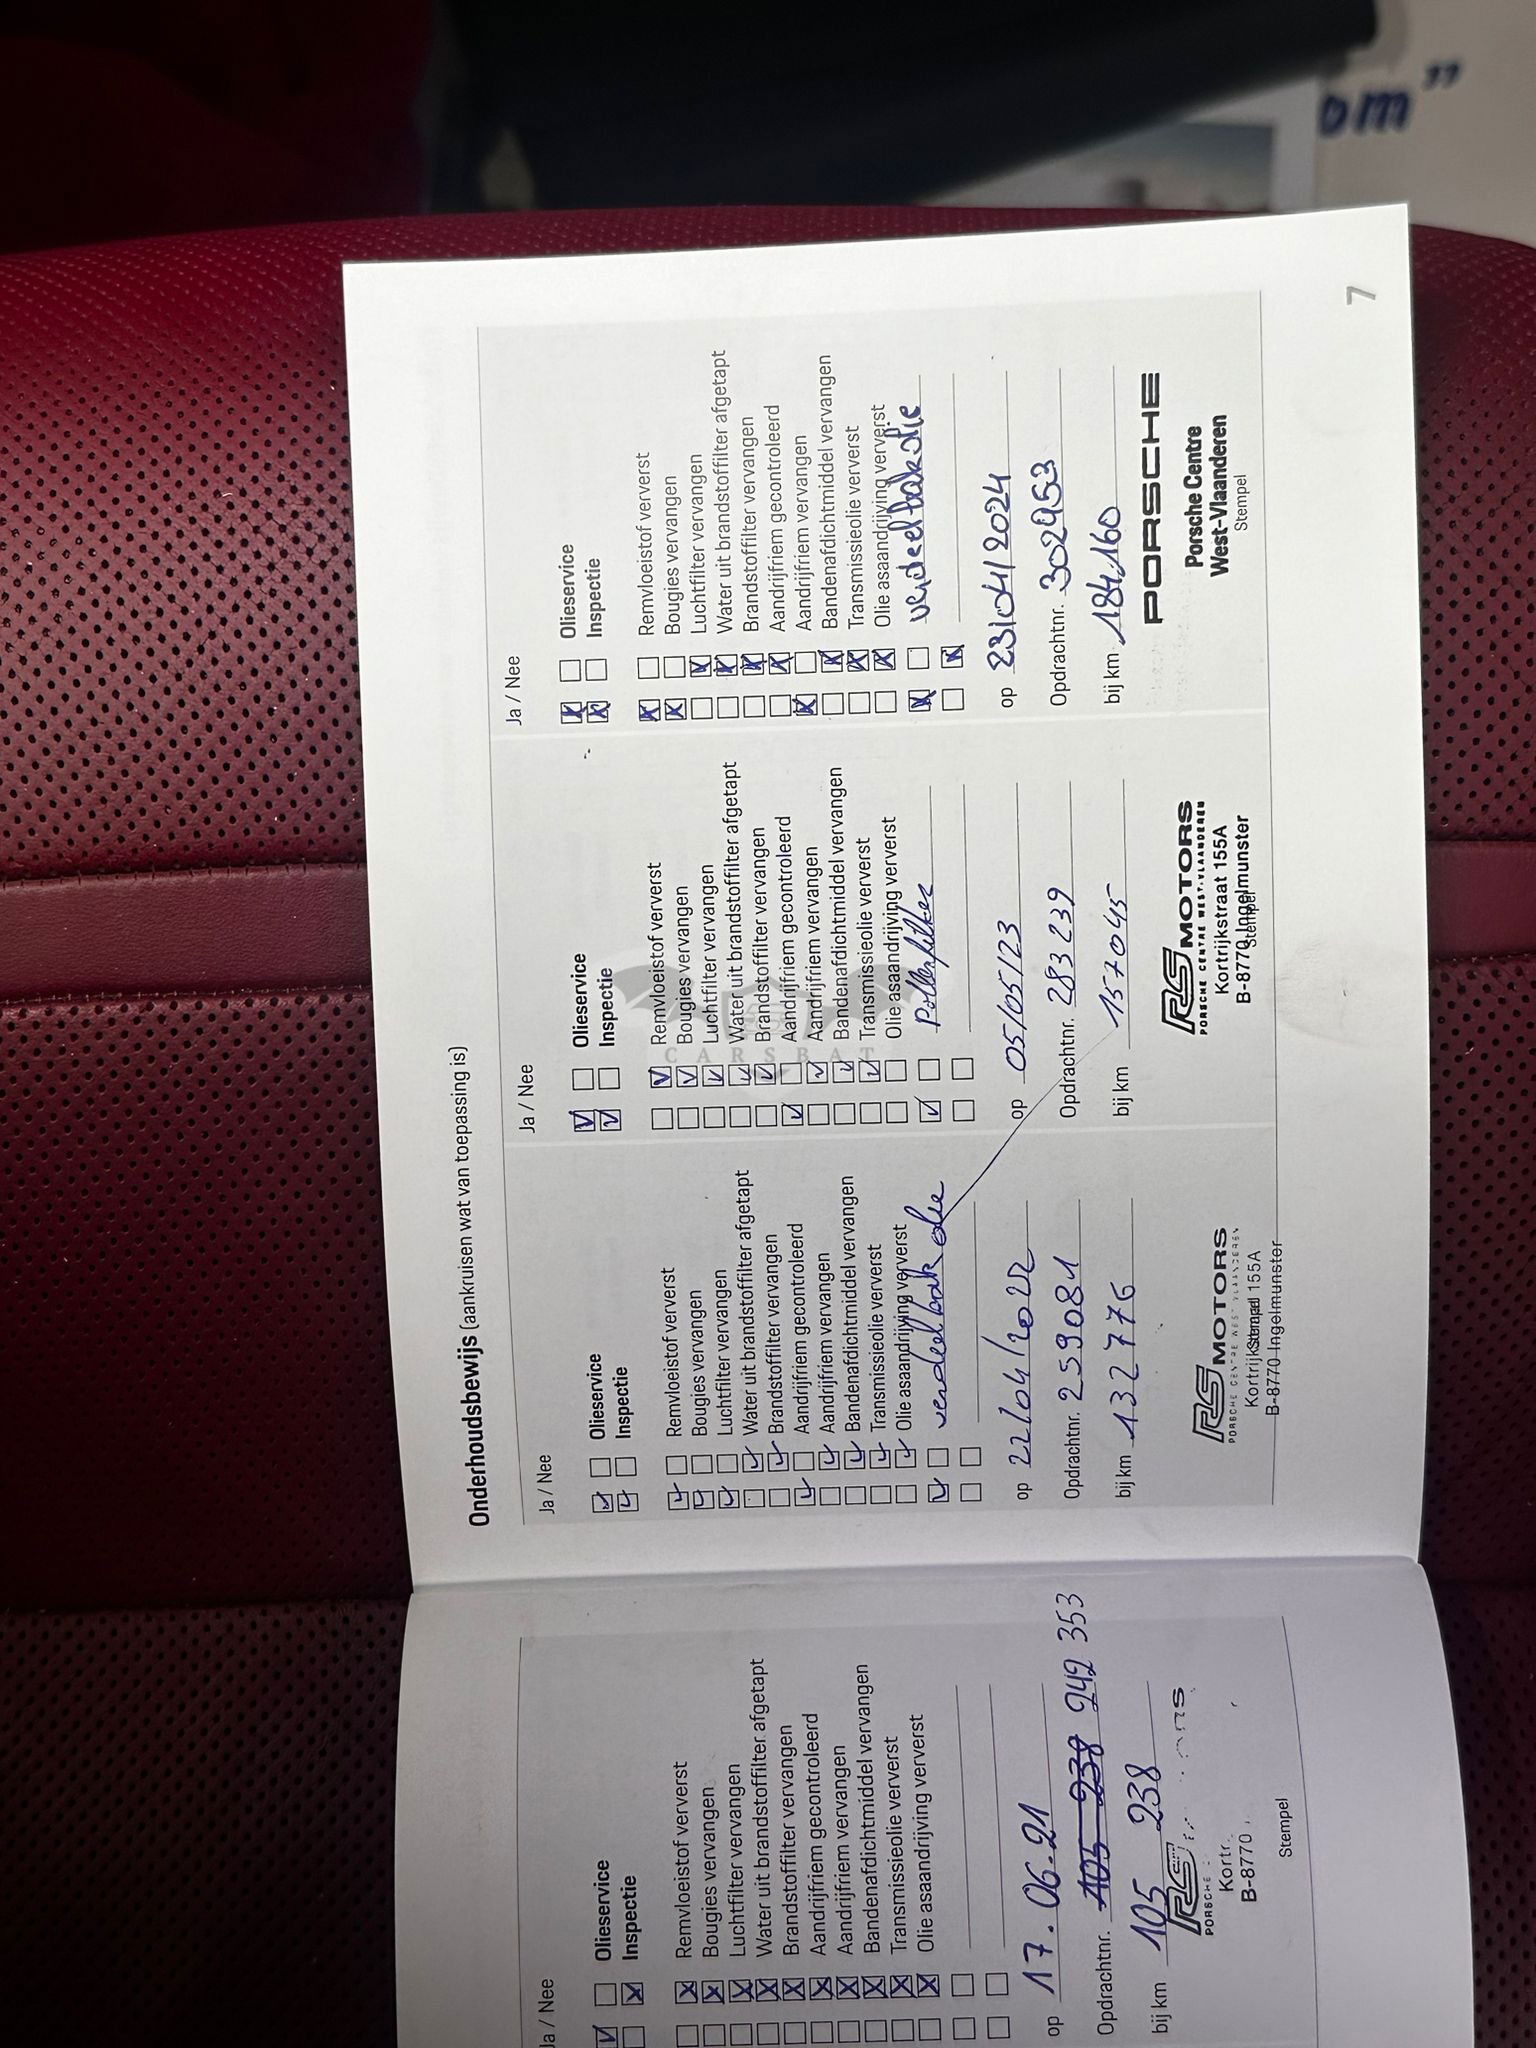 om”
Ja / Nee
Olieservice
Inspectie
Remvloeistof ververst
Bougies vervangen
Luchtfilter vervangen
Water uit brandstoffilter afgetapt
Brandstoffilter vervangen
Aandrijfriem gecontroleerd
Aandrijfriem vervangen
Bandenafdichtmiddel vervangen
Transmissieolie ververst
Olie asaandrijving ververst
op 17.06.21
Opdrachtnr. 105 238 242 353
bij km 105 238
RS
PORSCHE
Kortr
B-8770
Stempel
Onderhoudsbewijs (aankruisen wat van toepassing is)
Ja / Nee
Olieservice
Inspectie
Remvloeistof ververst
Bougies vervangen
Luchtfilter vervangen
Water uit brandstoffilter afgetapt
Brandstoffilter vervangen
Aandrijfriem gecontroleerd
Aandrijfriem vervangen
Bandenafdichtmiddel vervangen
Transmissieolie ververst
Olie asaandrijving ververst
verdeelbak olie
op 22/04/2022
Opdrachtnr. 259081
bij km 132776
RS MOTORS
PORSCHE CENTRE WEST-VLAANDEREN
Kortrijkstraat 155A
Stempel
B-8770 Ingelmunster
Ja / Nee
Olieservice
Inspectie
Remvloeistof ververst
Bougies vervangen
Luchtfilter vervangen
Water uit brandstoffilter afgetapt
Brandstoffilter vervangen
Aandrijfriem gecontroleerd
Aandrijfriem vervangen
Bandenafdichtmiddel vervangen
Transmissieolie ververst
Olie asaandrijving ververst
Pollenfilter
op 05/05/23
Opdrachtnr. 283239
bij km 157045
RS MOTORS
PORSCHE CENTRE WEST-VLAANDEREN
Kortrijkstraat 155A
B-8770 Ingelmunster
Stempel
Ja / Nee
Olieservice
Inspectie
Remvloeistof ververst
Bougies vervangen
Luchtfilter vervangen
Water uit brandstoffilter afgetapt
Brandstoffilter vervangen
Aandrijfriem gecontroleerd
Aandrijfriem vervangen
Bandenafdichtmiddel vervangen
Transmissieolie ververst
Olie asaandrijving ververst
verdeelbakolie
op 23/04/2024
Opdrachtnr. 302953
bij km 184.160
PORSCHE
Porsche Centre
West-Vlaanderen
Stempel
7
CARSBAT